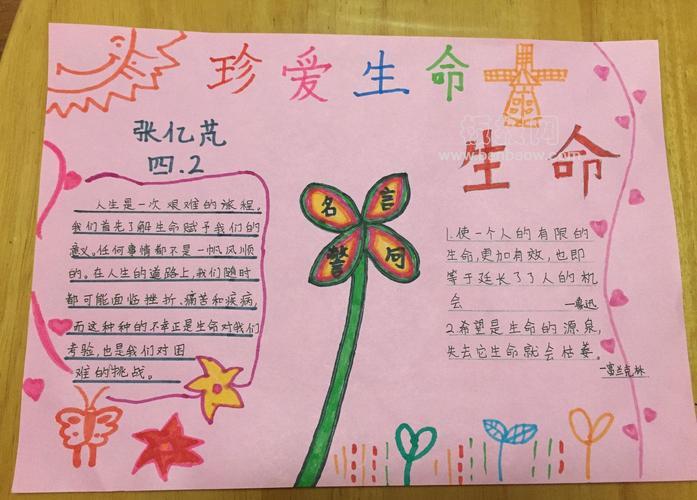 珍爱生命
张亿芃
四.2
人生是一次艰难的旅程。
我们首先了解生命赋予我们的
意义。任何事情都不是一帆风顺
的。在人生的道路上,我们随时
都可能面临挫折、痛苦和疾病,
而这种种的不幸正是生命对我们
考验,也是我们对困
难的挑战。
名言
警句
生命
1.使一个人的有限的
生命,更加有效,也即
等于延长了了人的机
会 —鲁迅
2.希望是生命的源泉,
失去它生命就会枯萎。
—富兰克林
板报网